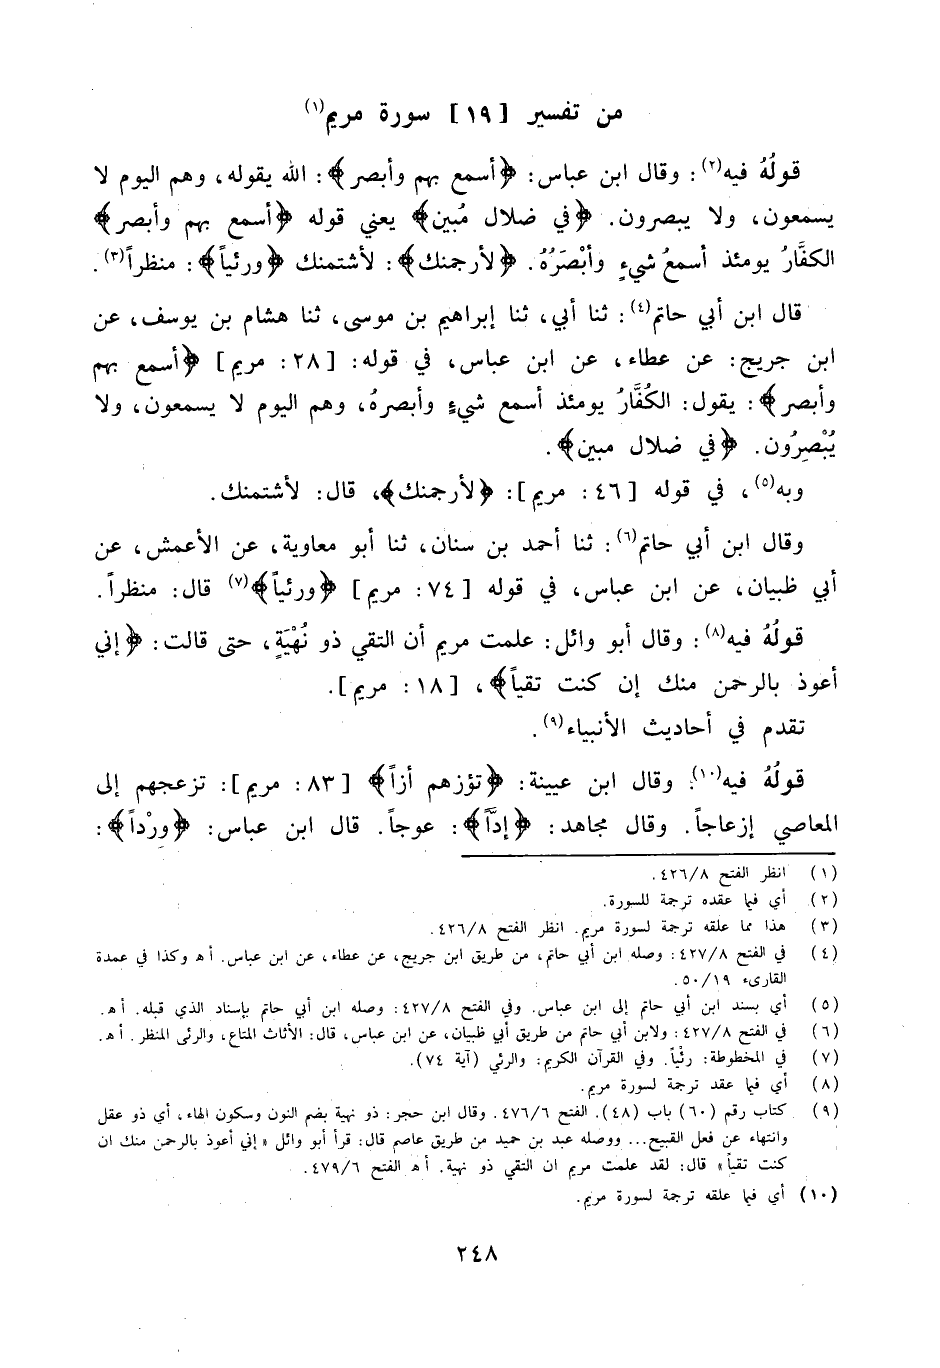 من تفسير [١٩] سورة مريم(١)
قولُهُ فيه(٢): وقال ابن عباس: ﴿أسمع بهم وأبصر﴾: الله يقوله، وهم اليوم لا
يسمعون، ولا يبصرون. ﴿في ضلال مُبين﴾ يعني قوله ﴿أسمع بهم وأبصر﴾
الكفَّارُ يومئذ أسمعُ شيءٍ وأبْصَرُهُ. ﴿لأرجمنك﴾: لأشتمنك ﴿ورئياً﴾: منظراً(٣).
قال ابن أبي حاتم(٤): ثنا أبي، ثنا إبراهيم بن موسى، ثنا هشام بن يوسف، عن
ابن جريج: عن عطاء، عن ابن عباس، في قوله: [٢٨: مريم] ﴿أسمع بهم
وأبصر﴾: يقول: الكُفَّارُ يومئذ أسمع شيءٍ وأبصرهُ، وهم اليوم لا يسمعون، ولا
يُبْصِرُون. ﴿في ضلال مبين﴾.
وبه(٥)، في قوله [٤٦: مريم]: ﴿لأرجمنك﴾، قال: لأشتمنك.
وقال ابن أبي حاتم(٦): ثنا أحمد بن سنان، ثنا أبو معاوية، عن الأعمش، عن
أبي ظبيان، عن ابن عباس، في قوله [٧٤: مريم] ﴿ورئياً﴾(٧) قال: منظراً.
قولُهُ فيه(٨): وقال أبو وائل: علمت مريم أن التقي ذو نُهْيَةٍ، حتى قالت: ﴿إني
أعوذ بالرحمن منك إن كنت تقياً﴾، [١٨: مريم].
تقدم في أحاديث الأنبياء(٩).
قولُهُ فيه(١٠): وقال ابن عيينة: ﴿تؤزهم أزاً﴾ [٨٣: مريم]: تزعجهم إلى
المعاصي إزعاجاً. وقال مجاهد: ﴿إدَّاً﴾: عوجاً. قال ابن عباس: ﴿وِرْداً﴾:
(١) انظر الفتح ٤٢٦/٨.
(٢) أي فيما عقده ترجمة للسورة.
(٣) هذا مما علقه ترجمة لسورة مريم. انظر الفتح ٤٢٦/٨.
(٤) في الفتح ٤٢٧/٨: وصله ابن أبي حاتم، من طريق ابن جريج، عن عطاء، عن ابن عباس. أ هـ وكذا في عمدة
القارىء ٥٠/١٩.
(٥) أي بسند ابن أبي حاتم إلى ابن عباس. وفي الفتح ٤٢٧/٨: وصله ابن أبي حاتم بإسناد الذي قبله. أ هـ.
(٦) في الفتح ٤٢٧/٨: ولابن أبي حاتم من طريق أبي ظبيان، عن ابن عباس، قال: الأثاث المتاع، والرئى المنظر. أ هـ.
(٧) في المخطوطة: رئْياً. وفي القرآن الكريم: والرئي (آية ٧٤).
(٨) أي فيما عقد ترجمة لسورة مريم.
(٩) كتاب رقم (٦٠) باب (٤٨). الفتح ٤٧٦/٦. وقال ابن حجر: ذو نهية بضم النون وسكون الهاء، أي ذو عقل
وانتهاء عن فعل القبيح... ووصله عبد بن حميد من طريق عاصم قال: قرأ أبو وائل «إني أعوذ بالرحمن منك ان
كنت تقياً» قال: لقد علمت مريم ان التقي ذو نهية. أ هـ الفتح ٤٧٩/٦.
(١٠) أي فيما علقه ترجمة لسورة مريم.
٢٤٨